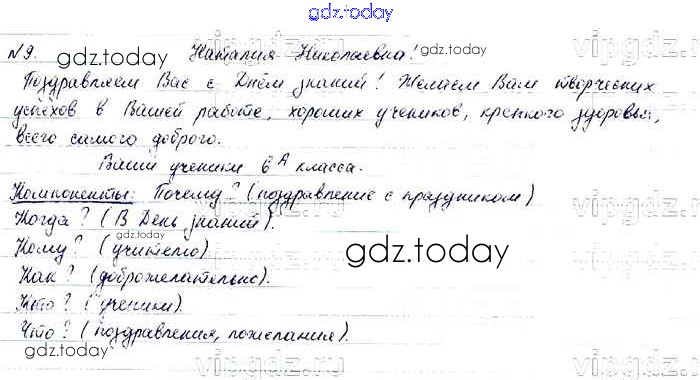 gdz.today
№9. gdz.today Наталия Николаевна!
Поздравляем Вас с Днём знаний! Желаем Вам творческих
успехов в Вашей работе, хороших учеников, крепкого здоровья,
всего самого доброго.
gdz.today
Ваши ученики 6А класса.
vipgdz.ru
Компоненты: Почему? (поздравление с праздником)
Когда? (В День знаний).
Кому? (учителю)
gdz.today
Как? (доброжелательно).
Кто? (ученики).
Что? (поздравления, пожелания).
gdz.today
vipgdz.ru